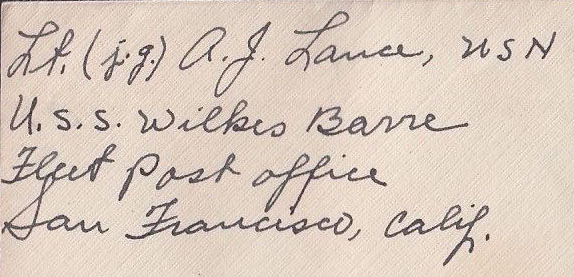 Lt. (j.g.) A. J. Lance, USN
U.S.S. Wilkes Barre
Fleet Post Office
San Francisco, Calif.